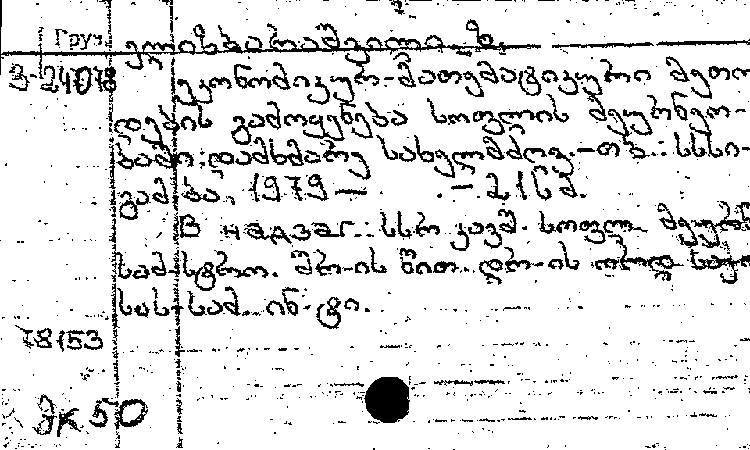 Груз.
ელიზბარაშვილი ზ.
3-24078
ეკონომიკურ-მათემატიკური მეთო
დების გამოყენება სოფლის მეურნეო-
ბაში: დამხმარე სახელმძღვ. – თბ.: სსსი-
გამ-ბა, 1979 – . – 216 გ.
В надзаг.: სსრ კავშ. სოფლ. მეურნ
სამ-სტრო. შრ-ის წით. დრ-ის
სას-სამ. ინ-ტი.
78153
ЭК 50